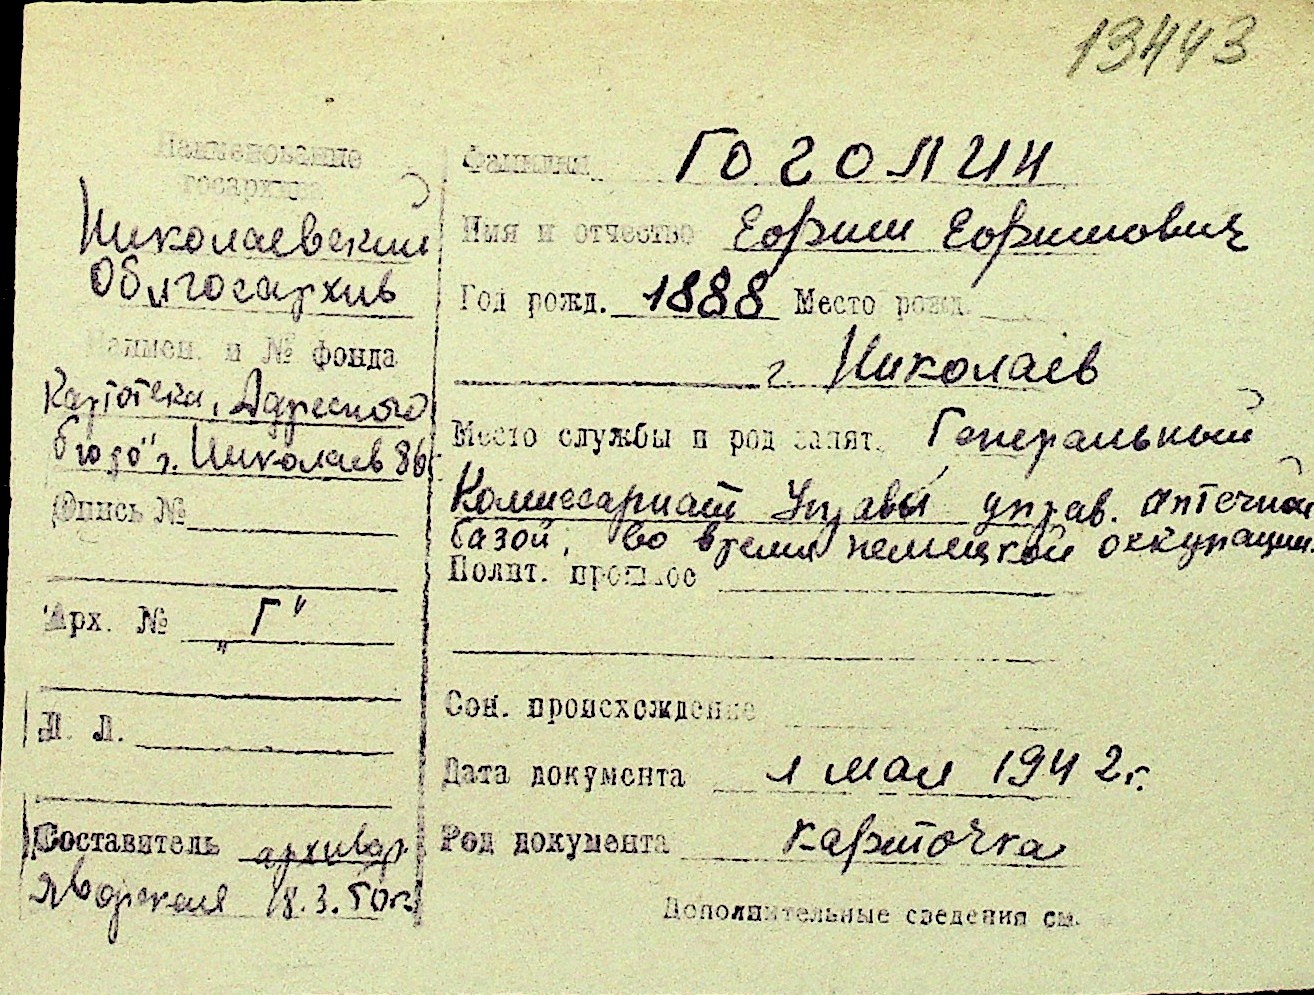 13443
Наименование
госархива
Николаевский
Облгосархив
Наимен. и № фонда
Картотека „Адресного
бюро" г. Николаев 86
Опись №
Арх. № „Г"
Л. Л.
Составитель архивар
Яворская 18.3.50г.
Фамилия Гоголин
Имя и отчество Ефрим Ефримович
Год рожд. 1888 Место рожд.
г. Николаев
Место службы и род занят. Генеральный
Комиссариат Управы управ. аптечной
базой, во время немецкой оккупации.
Полит. прошлое
Соц. происхождение
Дата документа 1 мая 1942 г.
Род документа карточка
Дополнительные сведения см.